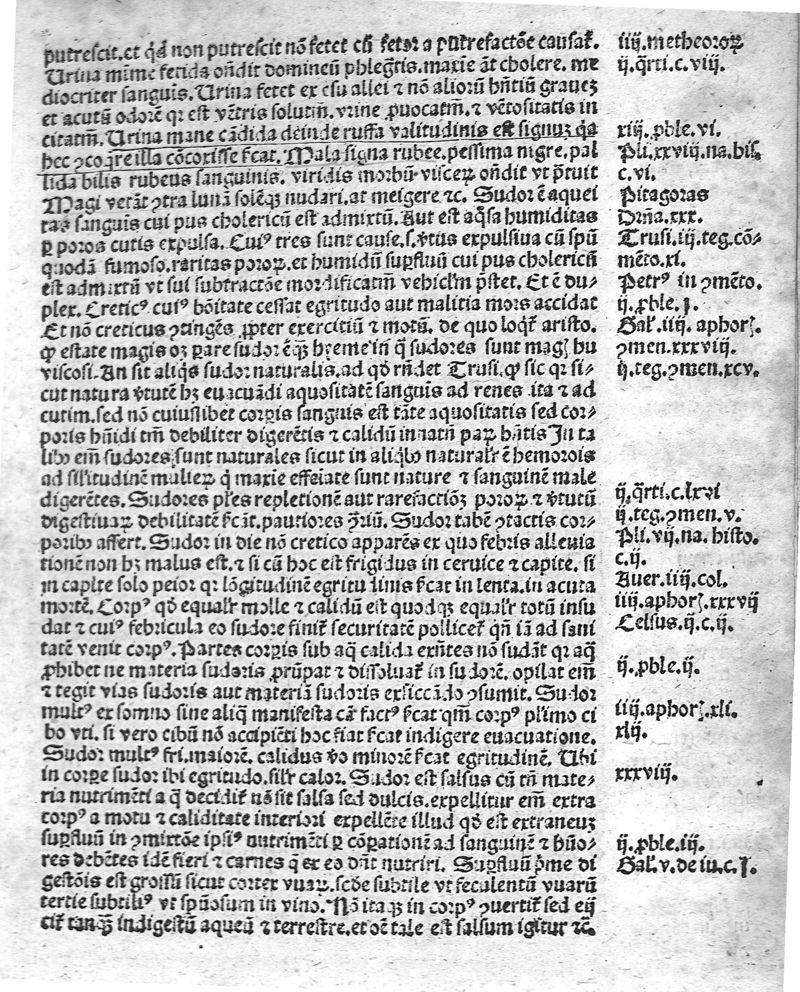 putrescit.et qd̄ non putrescit nō fetet cū fetor a putrefactōe causat̄.
Urina mīme fetida oñdit domineū phlegt̄is.maxīe āt cholere. me
diocriter sanguīs. Urina fetet ex esu allei ⁊ nō alioꝝ hñtiū grauez
et acutū odorē qr est vētris solutīn. vrine ꝓuocatm̄. ⁊ vētositatis in
citatm̄. Urina mane cādida deinde ruffa valitudinis est signuz q̄a
hec ꝯcoq̄re illa cōcoxisse fcat. Mala signa rubee. pessima nigre. pal
lida bilis rubeus sanguinis. viridis morbū visceꝝ oñdit vt p̄tuit
Magi vetāt ꝯtra lunā solēqꝫ nudari. at meigere ⁊c. Sudor ē aquei
tas sanguīs cui pus cholericū est admixtū. Aut est aq̄sa humiditas
ꝑ poros cutis expulsa. Cuiꝰ tres sunt cause. s. v̄tus expulsiua cū spū
quodā fumoso. raritas poroꝝ. et humidū suꝑfluū cui pus cholericū
est admixtū vt sui subtractōe mordificatm̄ vehiclm̄ p̄stet. Et ē du-
plex. Creticꝰ cuiꝰ bōitate cessat egritudo aut malitia mors accidat
Et nō creticus ꝯtingēs ꝓpter exercitiū ⁊ motū. de quo loqt̄ aristo.
ꝙ estate magis oꝫ ꝑare sudorē qꝫ hyeme in q̄ sudores sunt magꝭ hu
viscosi. An sit aliqs sudor naturalis. ad qd̄ rñdet Trusi. ꝙ sic qr si-
cut natura v̄tutē hꝫ euacuādi aquositatē sanguīs ad renes ita ⁊ ad
cutim. sed nō cuiuslibet corꝑis sanguīs est tāte aquositatis sed cor-
poris hūidi tm̄ debiliter digerētis ⁊ calidū innatū paꝝ hñtis In ta
libꝰ em̄ sudores sunt naturales sicut in aliqbꝰ naturalr ē hemorois
ad silitudinē mulieꝝ q̄ maxīe effeīate sunt nature ⁊ sanguinē male
digerētes. Sudores pl̄es repletionē aut rarefactiōꝫ poroꝝ ⁊ v̄tutū
digestiuaꝝ debilitatē fcāt. pautiores ꝯriū. Sudor tabē ꝯtactis cor-
poribꝰ affert. Sudor in die nō cretico apparēs ex quo febris alleuia
tionē non hꝫ malus est. ⁊ si cū hoc est frigidus in ceruice ⁊ capite. si
in capite solo peior qr lōgitudinē egritudinis fcat in lenta. in acuta
mortē. Corpꝰ qd̄ equalr molle ⁊ calidū est quodqꝫ equalr totū insu
dat ⁊ cuiꝰ febricula eo sudore finit̄ securitatē pollicet̄ qñ iā ad sani
tatē venit corpꝰ. Partes corꝑis sub aq̄ calida exñtes nō sudāt qr aq̄
ꝓhibet ne materia sudoris prūpat ⁊ dissoluat̄ in sudorē. opilat em̄
⁊ tegit vias sudoris aut materiā sudoris exsiccādo ꝯsumit. Sudor
multꝰ ex somno sine aliq̄ manifesta cā factꝰ fcat qm̄ corpꝰ pl̄imo ci
bo vti. si vero cibū nō accipiēti hoc fiat fcat indigere euacuatione.
Sudor multꝰ fri. maiorē. calidus v̄o minorē fcat egritudinē. Ubi
in corꝑe sudor ibi egritudo. silr calor. Sudor est salsus cū tn̄ mate-
ria nutrimēti a q̄ decidit̄ nō sit salsa sed dulcis. expellitur em̄ extra
corpꝰ a motu ⁊ caliditate interiori expellēre illud qd̄ est extraneuz
suꝑfluū in ꝯmixtōe ipsiꝰ nutrimēti ꝑ cōꝑationē ad sanguinē ⁊ hūo-
res debētes idē fieri ⁊ carnes q̄ ex eo dñt nutriri. Suꝑfluū p̄me di
gestōis est grossū sicut cortex vuaꝝ. scd̄e subtile vt feculentū vuarū
tertie subtiliꝰ vt spūosum in vino. Nō itaqꝫ in corpꝰ ꝯuertit̄ sed eij
cit̄ tanqꝫ indigestū aqueū ⁊ terrestre. et oē tale est salsum igitur ⁊c.
iiij.metheoroꝝ
ij.q̄rti.c.viij.
xiij.ꝓble.vi.
Pli.xxviij.na.his.
c.vi.
Pitagoras
Drīa.xxx.
Trusi.iij.teg.cō-
mēto.xi.
Petrꝰ in ꝯmēto.
ij.ꝓble.j.
Gal̄.iiij.aphorꝭ.
ꝯmen.xxxviij.
ij.teg.ꝯmen.xcv.
ij.q̄rti.c.lxvi
ij.teg.ꝯmen.v.
Pli.vij.na.histo.
c.ij.
Auer.iiij.col.
iiij.aphorꝭ.xxxvij
Celsus.ij.c.ij.
ij.ꝓble.ij.
iiij.aphorꝭ.xli.
xlij.
xxxviij.
ij.ꝓble.iij.
Gal̄.v.de iu.c.j.